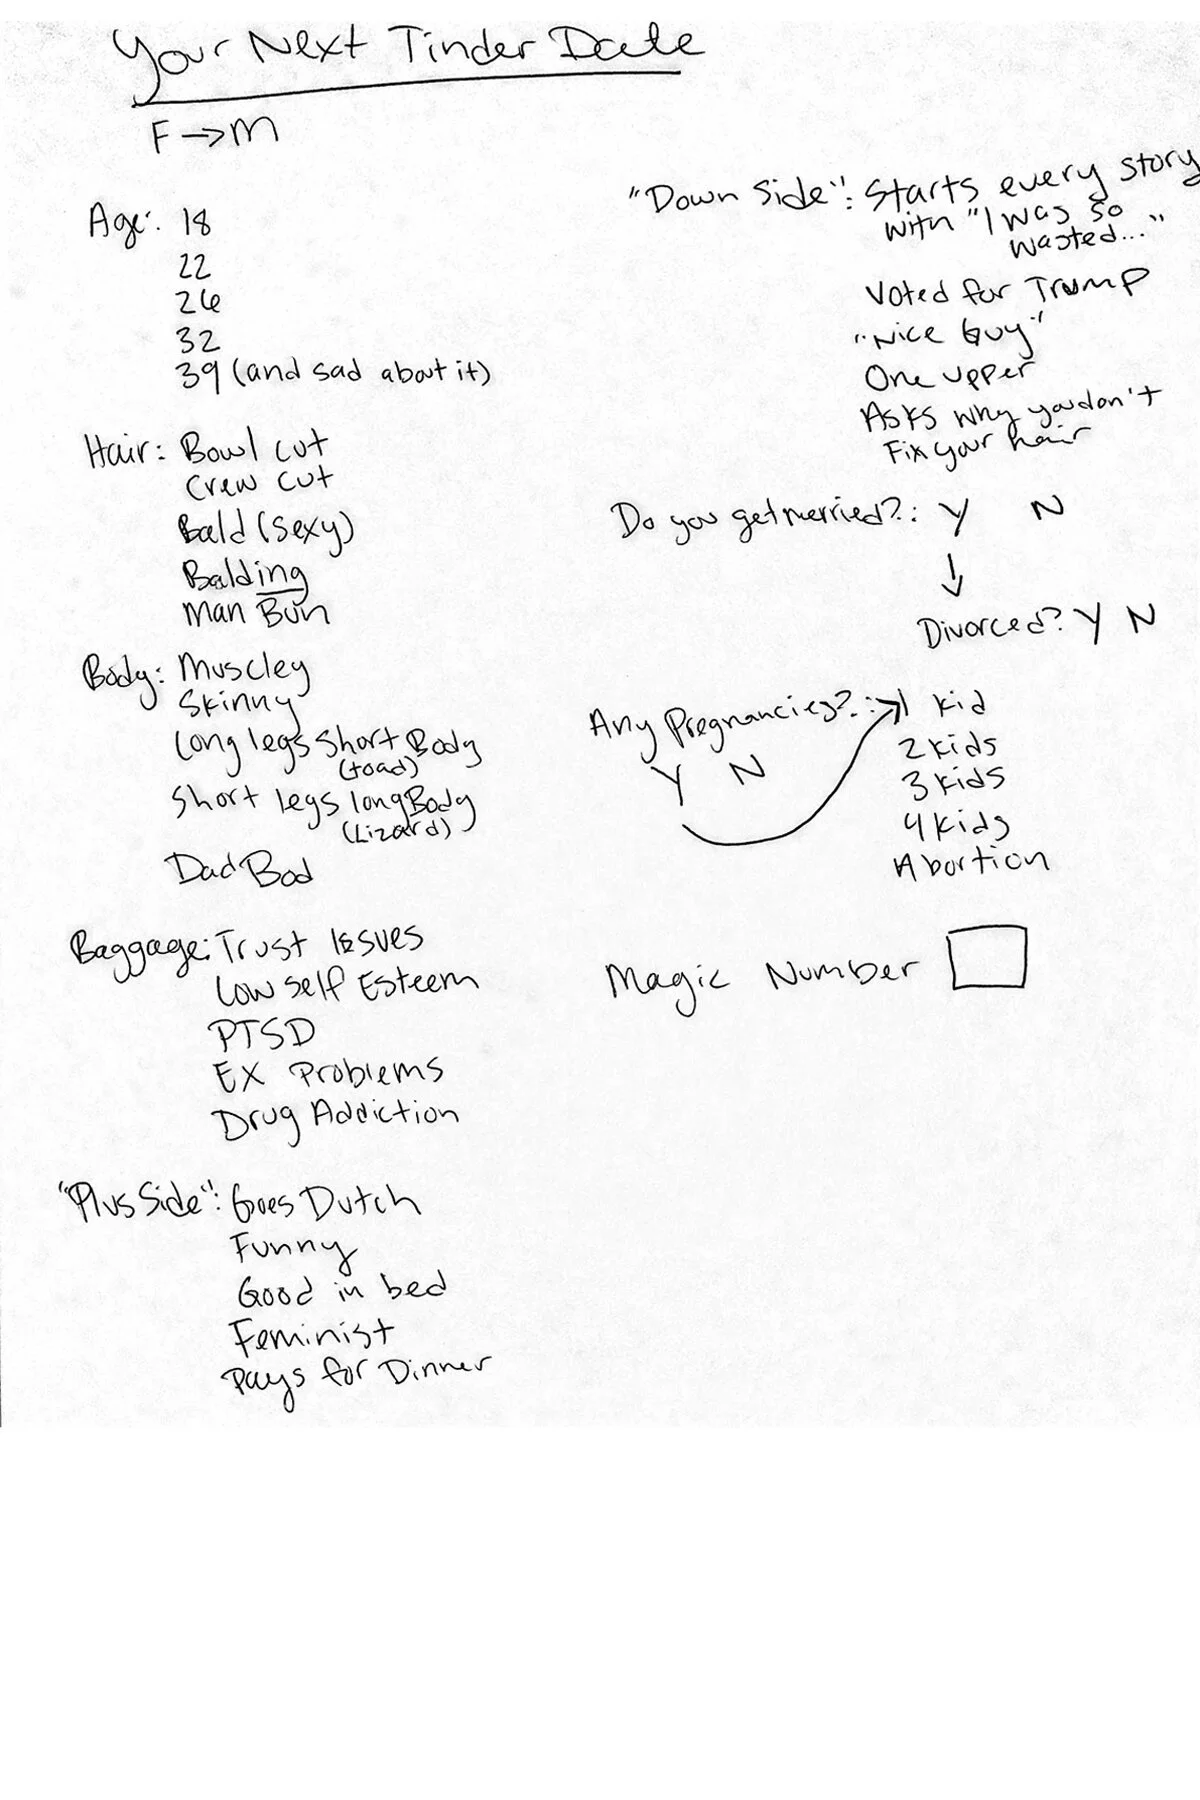 Your Next Tinder Date
F → M
Age: 18
22
26
32
39 (and sad about it)
Hair: Bowl cut
Crew cut
Bald (sexy)
Balding
Man Bun
Body: Muscley
Skinny
Long legs short Body
(toad)
Short legs long Body
(Lizard)
Dad Bod
Baggage: Trust Issues
Low self Esteem
PTSD
EX Problems
Drug Addiction
"Plus Side": Goes Dutch
Funny
Good in bed
Feminist
Pays for Dinner
"Down Side": Starts every story
with "I was so
wasted..."
Voted for Trump
"Nice Guy"
One upper
Asks why you don't
Fix your hair
Do you get merried?: Y N
↓
Divorced? Y N
Any Pregnancies?: → 1 kid
Y N
2 kids
3 kids
4 kids
Abortion
Magic Number